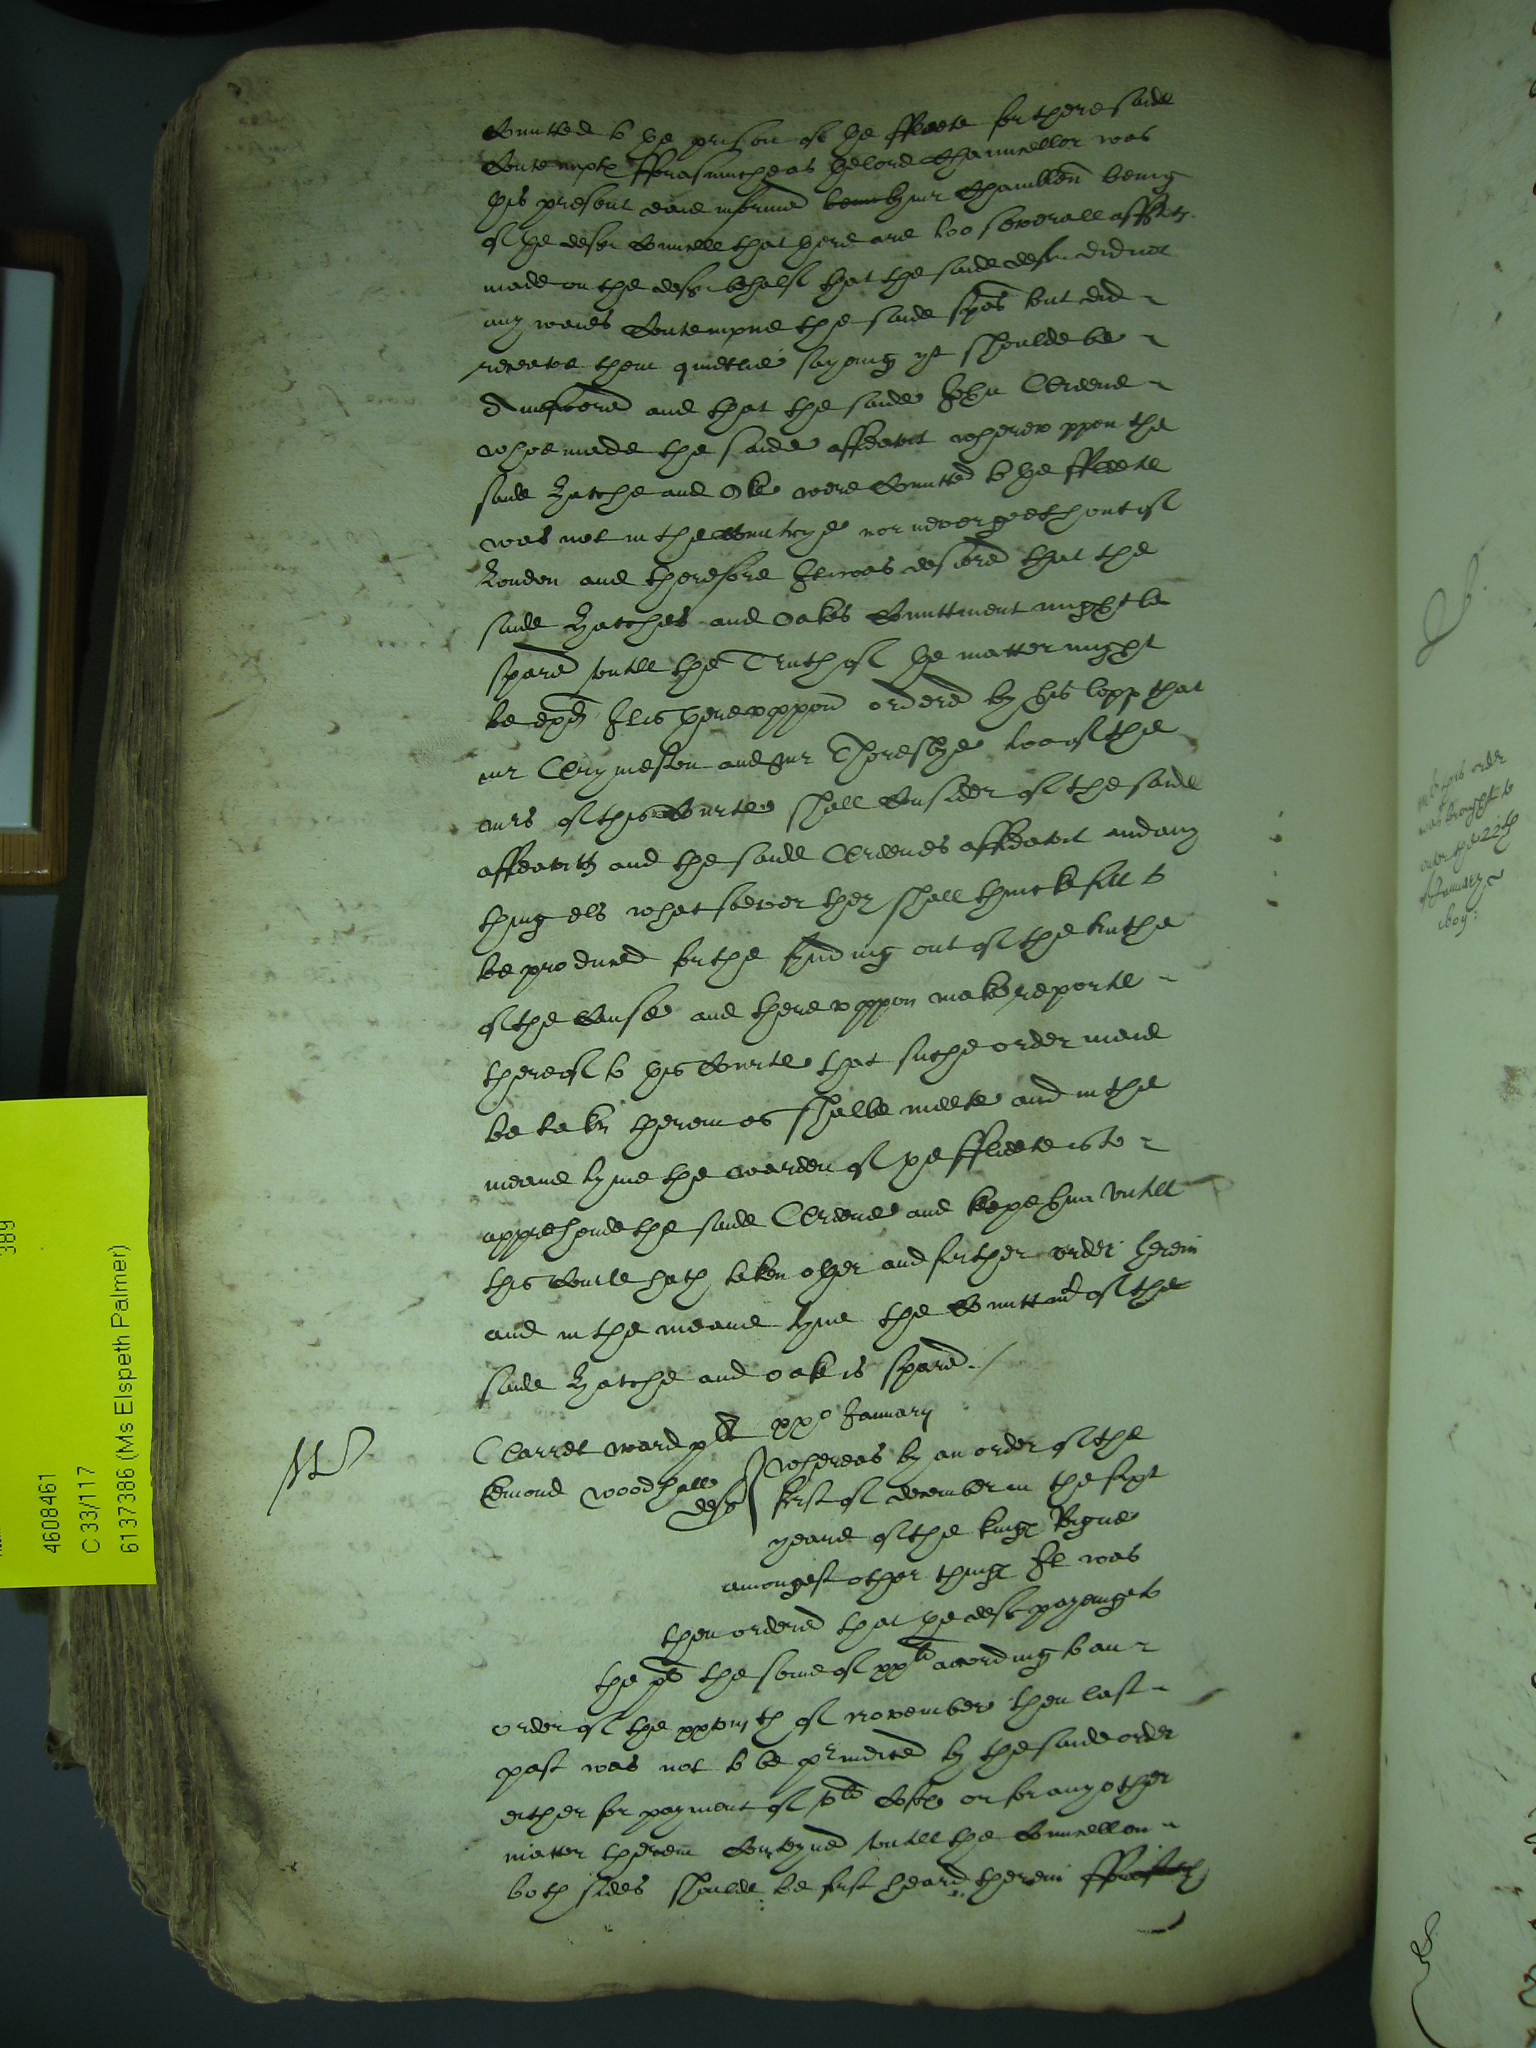 Comitted to the prison of the ffleete for there saide
Contempte fforasmuche as the lorde Chauncellor was
this present daie informed by mr Chamblen being
of the deftes Councell that there are too severall affits
made on the deftes behalf that the saide deft did not
any waies Contempne the saide spes but did
receave them quietlie sayeing yt shoulde be
Answered and that the saide John Greene
whoe made the saide affidavit whereuppon the
saide Hatche and Oke were Comitted to the ffleete
was not in the Countrye nor never goeth out of
London and therefore It was desiered that the
saide Hatches and Oakes Comittment might be
spared untill the Truth of the matter might
be exd It is thereuppon ordered by his lopp that
mr Grymeston and mr Thoresbye too of the
mrs of this Courte shall Consider of the saide
affidavits and the saide Greenes affidavit and any
thing els whatsoever they shall thincke fitt to
be produced for the fynding out of the truthe
of the Cause and thereuppon make reporte
thereof to this Courte that suche order maie
be taken therein as shalbe meete and in the
meane tyme the warden of the ffleete is to
apprehende the saide Greene and kepe him untill
this Courte hath taken other and further order herein
and in the meane tyme the Comittmt of the
saide Hatche and oake is spared /
Garret ward plt xxo January
Edmond woodhall deft
whereas by an order of the
first of december in the first
yeare of the kings Raigne
amongest other things It was
then ordered that the deft payeinge to
the pl the some of xxli according to an
order of the xxviijth of November then last
past was not to be preiudiced by the saide order
either for payment of Costs or for any other
matter therein Conteyned untill the Councell on
both sides shoulde be first heard therein
this order
was brought to
enter the 22th
of January
1607:
389
4608461
C 33/117
6137386 (Ms Elspeth Palmer)